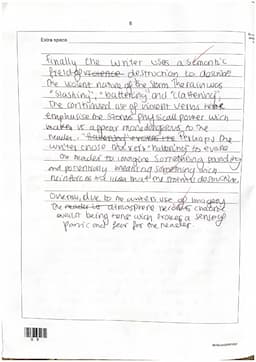 6
Extra space
Finally the writer uses a semantic
field of violence destruction to describe
the violent nature of the storm. The rain was
"slashing", "battering" and "clattering".
The continued use of violent verbs here
emphasise the storms physical power wich
makes it appear more dangerous to the
reader. Perhaps the
writer chose the verb "battering" to evoke
the reader to imagine something pounding
and potentially breaking something wich
reinforces the idea that the storm is destructive.
Overall, due to the writers use of imagery
the reader is atmosphere becomes chaotic
whilst being tense wich evokes a sense of
panic and fear for the reader.